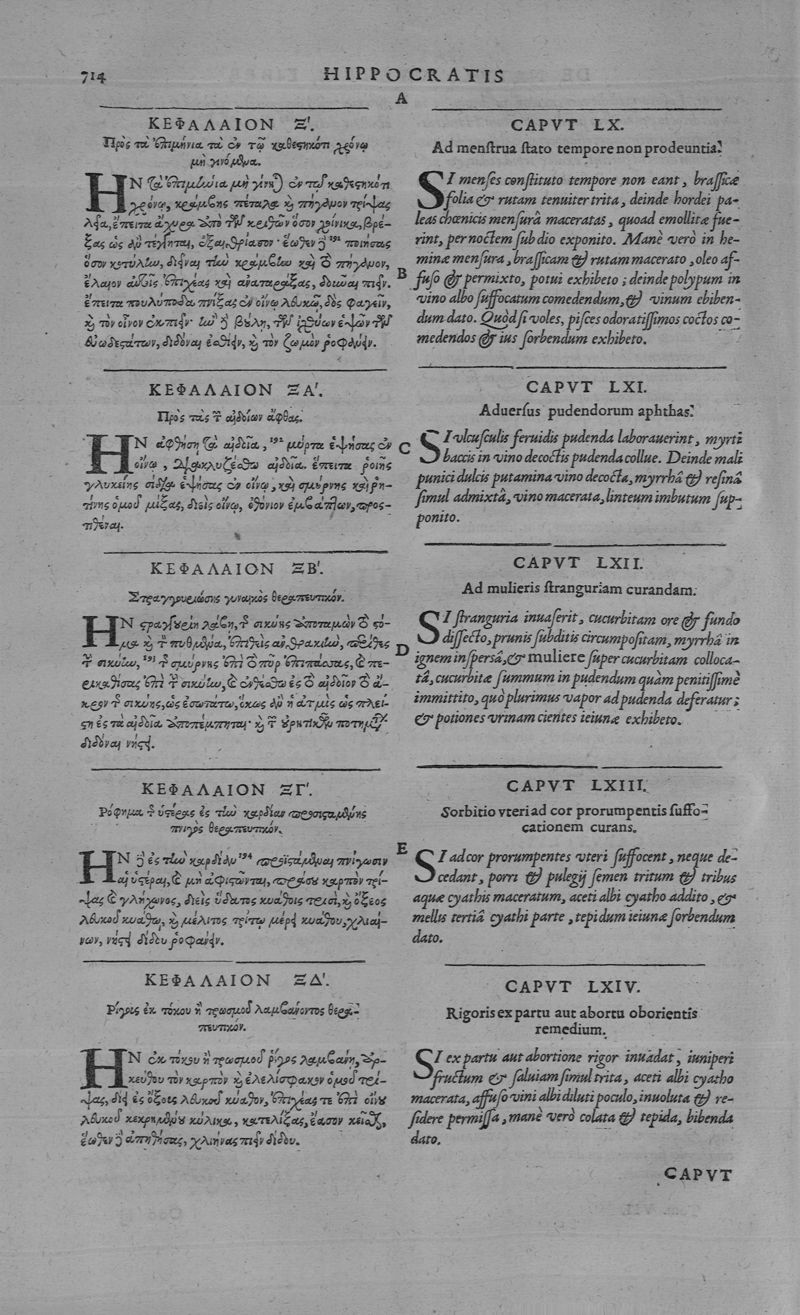 714
HIPPOCRATIS
A
ΚΕΦΑΛΑΙΟΝ Ξ΄.
Πρὸς τὰ ἐπιμήνια τὰ ἐν τῷ καθεστηκότι χρόνῳ
μὴ γινόμενα.
ΗΝ τὰ ἐπιμήνια μὴ γίνηται ἐν τῷ καθεστηκότι
χρόνῳ, κράμβης πέταλα καὶ πήγανον τρίψας
λεῖα, ἔπειτα ἄχυρα ἀπὸ τῶν κριθῶν ὅσον χοίνικα, βρέ-
ξας ὡς ἂν τέγξηται, ἐξαιθρίασον· ἕωθεν δὲ 191 ποιήσας
ὅσον κοτύλην, διεῖναι τὴν κράμβην καὶ τὸ πήγανον,
B
ἔλαιον αὖθις ἐπιχέας καὶ ἀναταράξας, δοῦναι πιεῖν.
ἔπειτα πουλύποδα πνίξας ἐν οἴνῳ λευκῷ, δὸς φαγεῖν,
καὶ τὸν οἶνον ἐκπιεῖν· ἢν δὲ βούλῃ, τῶν ἰχθύων ἑψῶν τῶν
εὐωδεστάτων, διδόναι ἐσθίειν, καὶ τὸν ζωμὸν ῥοφέειν.
ΚΕΦΑΛΑΙΟΝ ΞΑ΄.
Πρὸς τὰς τῶν αἰδοίων ἄφθας.
ΗΝ ἀφθήσῃ τὰ αἰδοῖα, 192 μύρτα ἑψήσας ἐν
C
οἴνῳ, διακλυζέσθω αἰδοῖα. ἔπειτα ῥοιῆς
γλυκείης σίδια ἑψήσας ἐν οἴνῳ, καὶ σμύρνης καὶ ῥη-
τίνης ὁμοῦ μίξας, διεὶς οἴνῳ, ὀθόνιον ἐμβάπτων, προσ-
τιθέναι.
ΚΕΦΑΛΑΙΟΝ ΞΒ΄.
Στραγγουριώσης γυναικὸς θεραπευτικόν.
ΗΝ στραγγουρίη λάβῃ, τῆς σικύης ἀποταμὼν τὸ στό-
μα καὶ τὸν πυθμένα, ἐπιθεὶς ἀνθρακιὴν, περίθες
D
τὴν σικύην, 193 τῆς σμύρνης ἐπὶ τὸ πῦρ ἐπιπάσας, καὶ πε-
ρικαθίσας ἐπὶ τὴν σικύην, καὶ ἐνθέσθω ἐς τὸ αἰδοῖον τὸ ἄ-
κρον τῆς σικύης, ὡς ἐσωτάτω, ὅκως ἂν ἡ ἀτμὶς ὡς πλεί-
στη ἐς τὰ αἰδοῖα ἀποπέμπηται· καὶ τῶν οὐρητικῶν ποτημάτων
διδόναι νήστει.
ΚΕΦΑΛΑΙΟΝ ΞΓ΄.
Ῥόφημα τῆς ὑστέρας ἐς τὴν καρδίαν προσισταμένης
πνιγὸς θεραπευτικόν.
E
ΗΝ δὲ ἐς τὴν καρδίαν 194 προϊστάμεναι πνίγωσιν
αἱ ὑστέραι, καὶ μὴ ἀφιστῶνται, πράσου καρπὸν τρί-
ψας καὶ γλήχωνος, διεὶς ὕδατος κυάθοις τρισὶ, καὶ ὄξεος
λευκοῦ κυάθῳ, καὶ μέλιτος τρίτῳ μέρει κυάθου, χλιαί-
νων, νήστει δίδου ῥοφαίνειν.
ΚΕΦΑΛΑΙΟΝ ΞΔ΄.
Ῥίγεος ἐκ τόκου ἢ τρωσμοῦ λαμβάνοντος θερα-
πευτικόν.
ΗΝ ἐκ τόκου ἢ τρωσμοῦ ῥῖγος λαμβάνῃ, ἀρ-
κεύθου τὸν καρπὸν καὶ ἐλελίσφακον ὁμοῦ τρί-
ψας, διεὶς ἐς ὄξεος λευκοῦ κύαθον, ἐπιχέας τε ἐπὶ οἴνου
λευκοῦ κεκρημένου κύλικα, κατελίξας, ἔασον κεῖσθαι,
ἕωθεν δὲ ἀπηθήσας, χλιήνας πιεῖν δίδου.
CAPVT LX.
Ad menſtrua ſtato tempore non prodeuntia.
SI menſes conſtituto tempore non eant, braſſicæ
folia & rutam tenuiter trita, deinde hordei pa-
leas chœnicis menſurâ maceratas, quoad emollitæ fue-
rint, per noctem ſub dio exponito. Manè verò in he-
minæ menſura, braſſicam & rutam macerato, oleo af-
fuſo & permixto, potui exhibeto; deinde polypum in
vino albo ſuffocatum comedendum, & vinum ebiben-
dum dato. Quòd ſi voles, piſces odoratiſſimos coctos co-
medendos & ius ſorbendum exhibeto.
CAPVT LXI.
Aduerſus pudendorum aphthas.
SI vlcuſculis feruidis pudenda laborauerint, myrti
baccis in vino decoctis pudenda collue. Deinde mali
punici dulcis putamina vino decocta, myrrhâ & reſinâ
ſimul admixtâ, vino macerata, linteum imbutum ſup-
ponito.
CAPVT LXII.
Ad mulieris ſtranguriam curandam.
SI ſtranguria inuaſerit, cucurbitam ore & fundo
diſſecto, prunis ſubditis circumpoſitam, myrrhâ in
ignem inſperſâ, & muliere ſuper cucurbitam colloca-
tâ, cucurbitæ ſummum in pudendum quàm penitiſſimè
immittito, quò plurimus vapor ad pudenda deferatur;
& potiones vrinam cientes ieiunæ exhibeto.
CAPVT LXIII.
Sorbitio vteri ad cor prorumpentis ſuffo-
cationem curans.
SI ad cor prorumpentes vteri ſuffocent, neque de-
cedant, porri & pulegij ſemen tritum & tribus
aquæ cyathis maceratum, aceti albi cyatho addito, &
mellis tertiâ cyathi parte, tepidum ieiunæ ſorbendum
dato.
CAPVT LXIV.
Rigoris ex partu aut abortu oborientis
remedium.
SI ex partu aut abortione rigor inuadat, iuniperi
fructum & ſaluiam ſimul trita, aceti albi cyatho
macerata, affuſo vini albi diluti poculo, inuoluta & re-
ſidere permiſſa, manè verò colata & tepida, bibenda
dato.
CAPVT